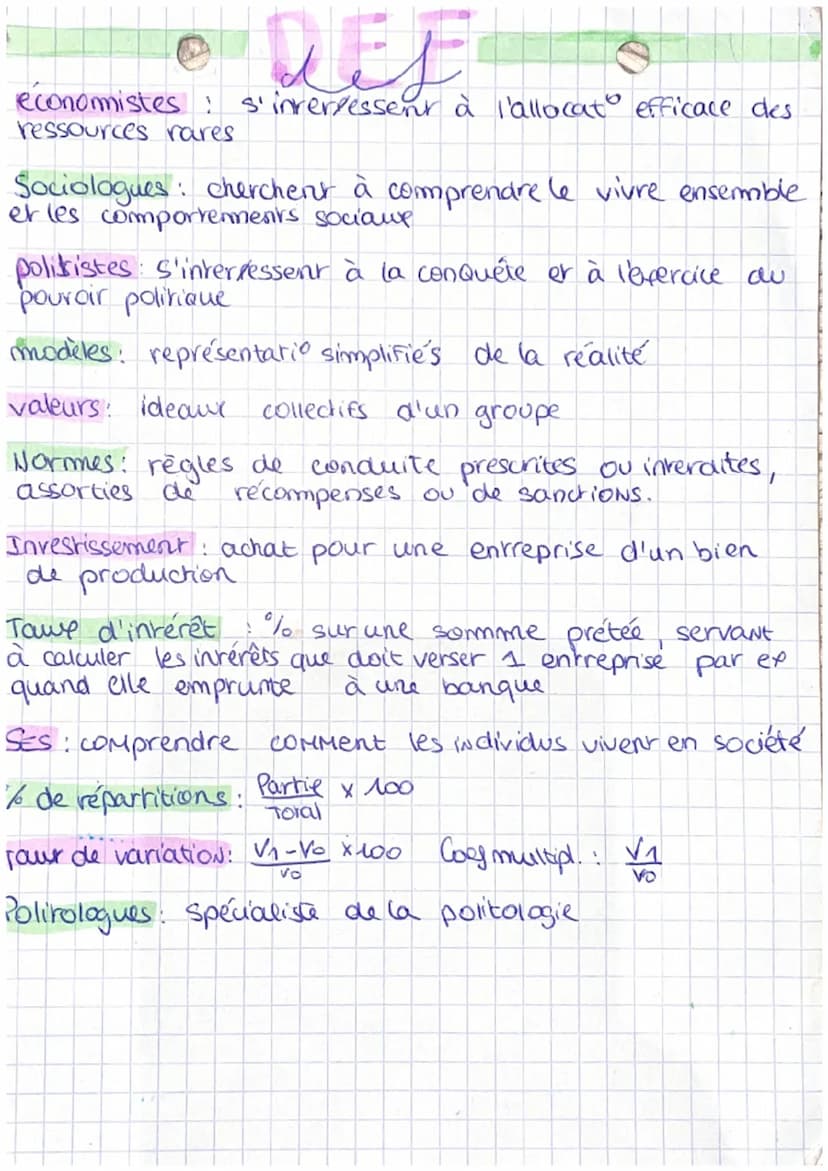 DEF
def
économistes : s'interressent à l'allocat° efficace des
ressources rares
Sociologues : cherchent à comprendre le vivre ensemble
et les comportements sociaux
politistes : s'interressent à la conquête et à l'exercice du
pouvoir politique
modèles : représentatio simplifiés de la réalité
valeurs : ideaux collectifs d'un groupe
Normes : règles de conduite prescrites ou interdites,
assorties de récompenses ou de sanctions.
Investissement : achat pour une entreprise d'un bien
de production
Taux d'intérêt : % sur une somme prétée, servant
à calculer les intérêts que doit verser 1 entreprise par ex
quand elle emprunte à une banque
SES : comprendre comment les individus vivent en société
% de répartitions : Partie / Total x 100
Taux de variation : V1-V0 / V0 x100 Coef multipl. : V1 / V0
Politologues : spécialiste de la politologie